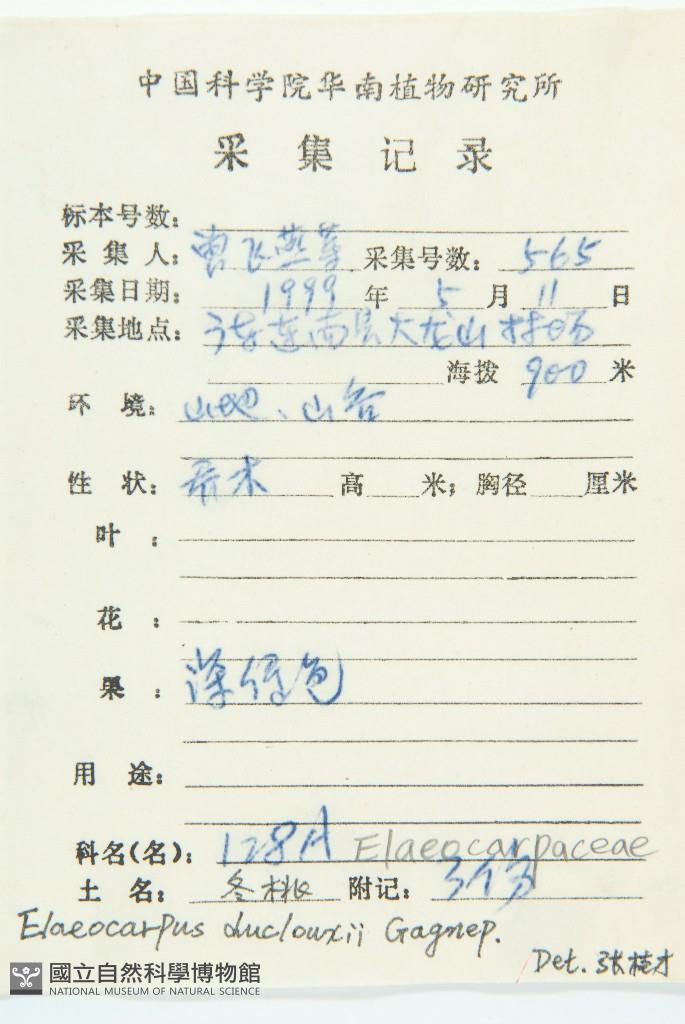 中国科学院华南植物研究所
采集记录
标本号数：
采集人：曾飞燕等 采集号数：565
采集日期：1999年5月11日
采集地点：连南县大龙山林场
海拨900米
环境：山地、山谷
性状：乔木 高 米；胸径 厘米
叶：
花：
果：深绿色
用途：
科名(名)：128A Elaeocarpaceae
土名：冬桃 附记：
Elaeocarpus duclouxii Gagnep.
Det. 张桂才
國立自然科學博物館
NATIONAL MUSEUM OF NATURAL SCIENCE